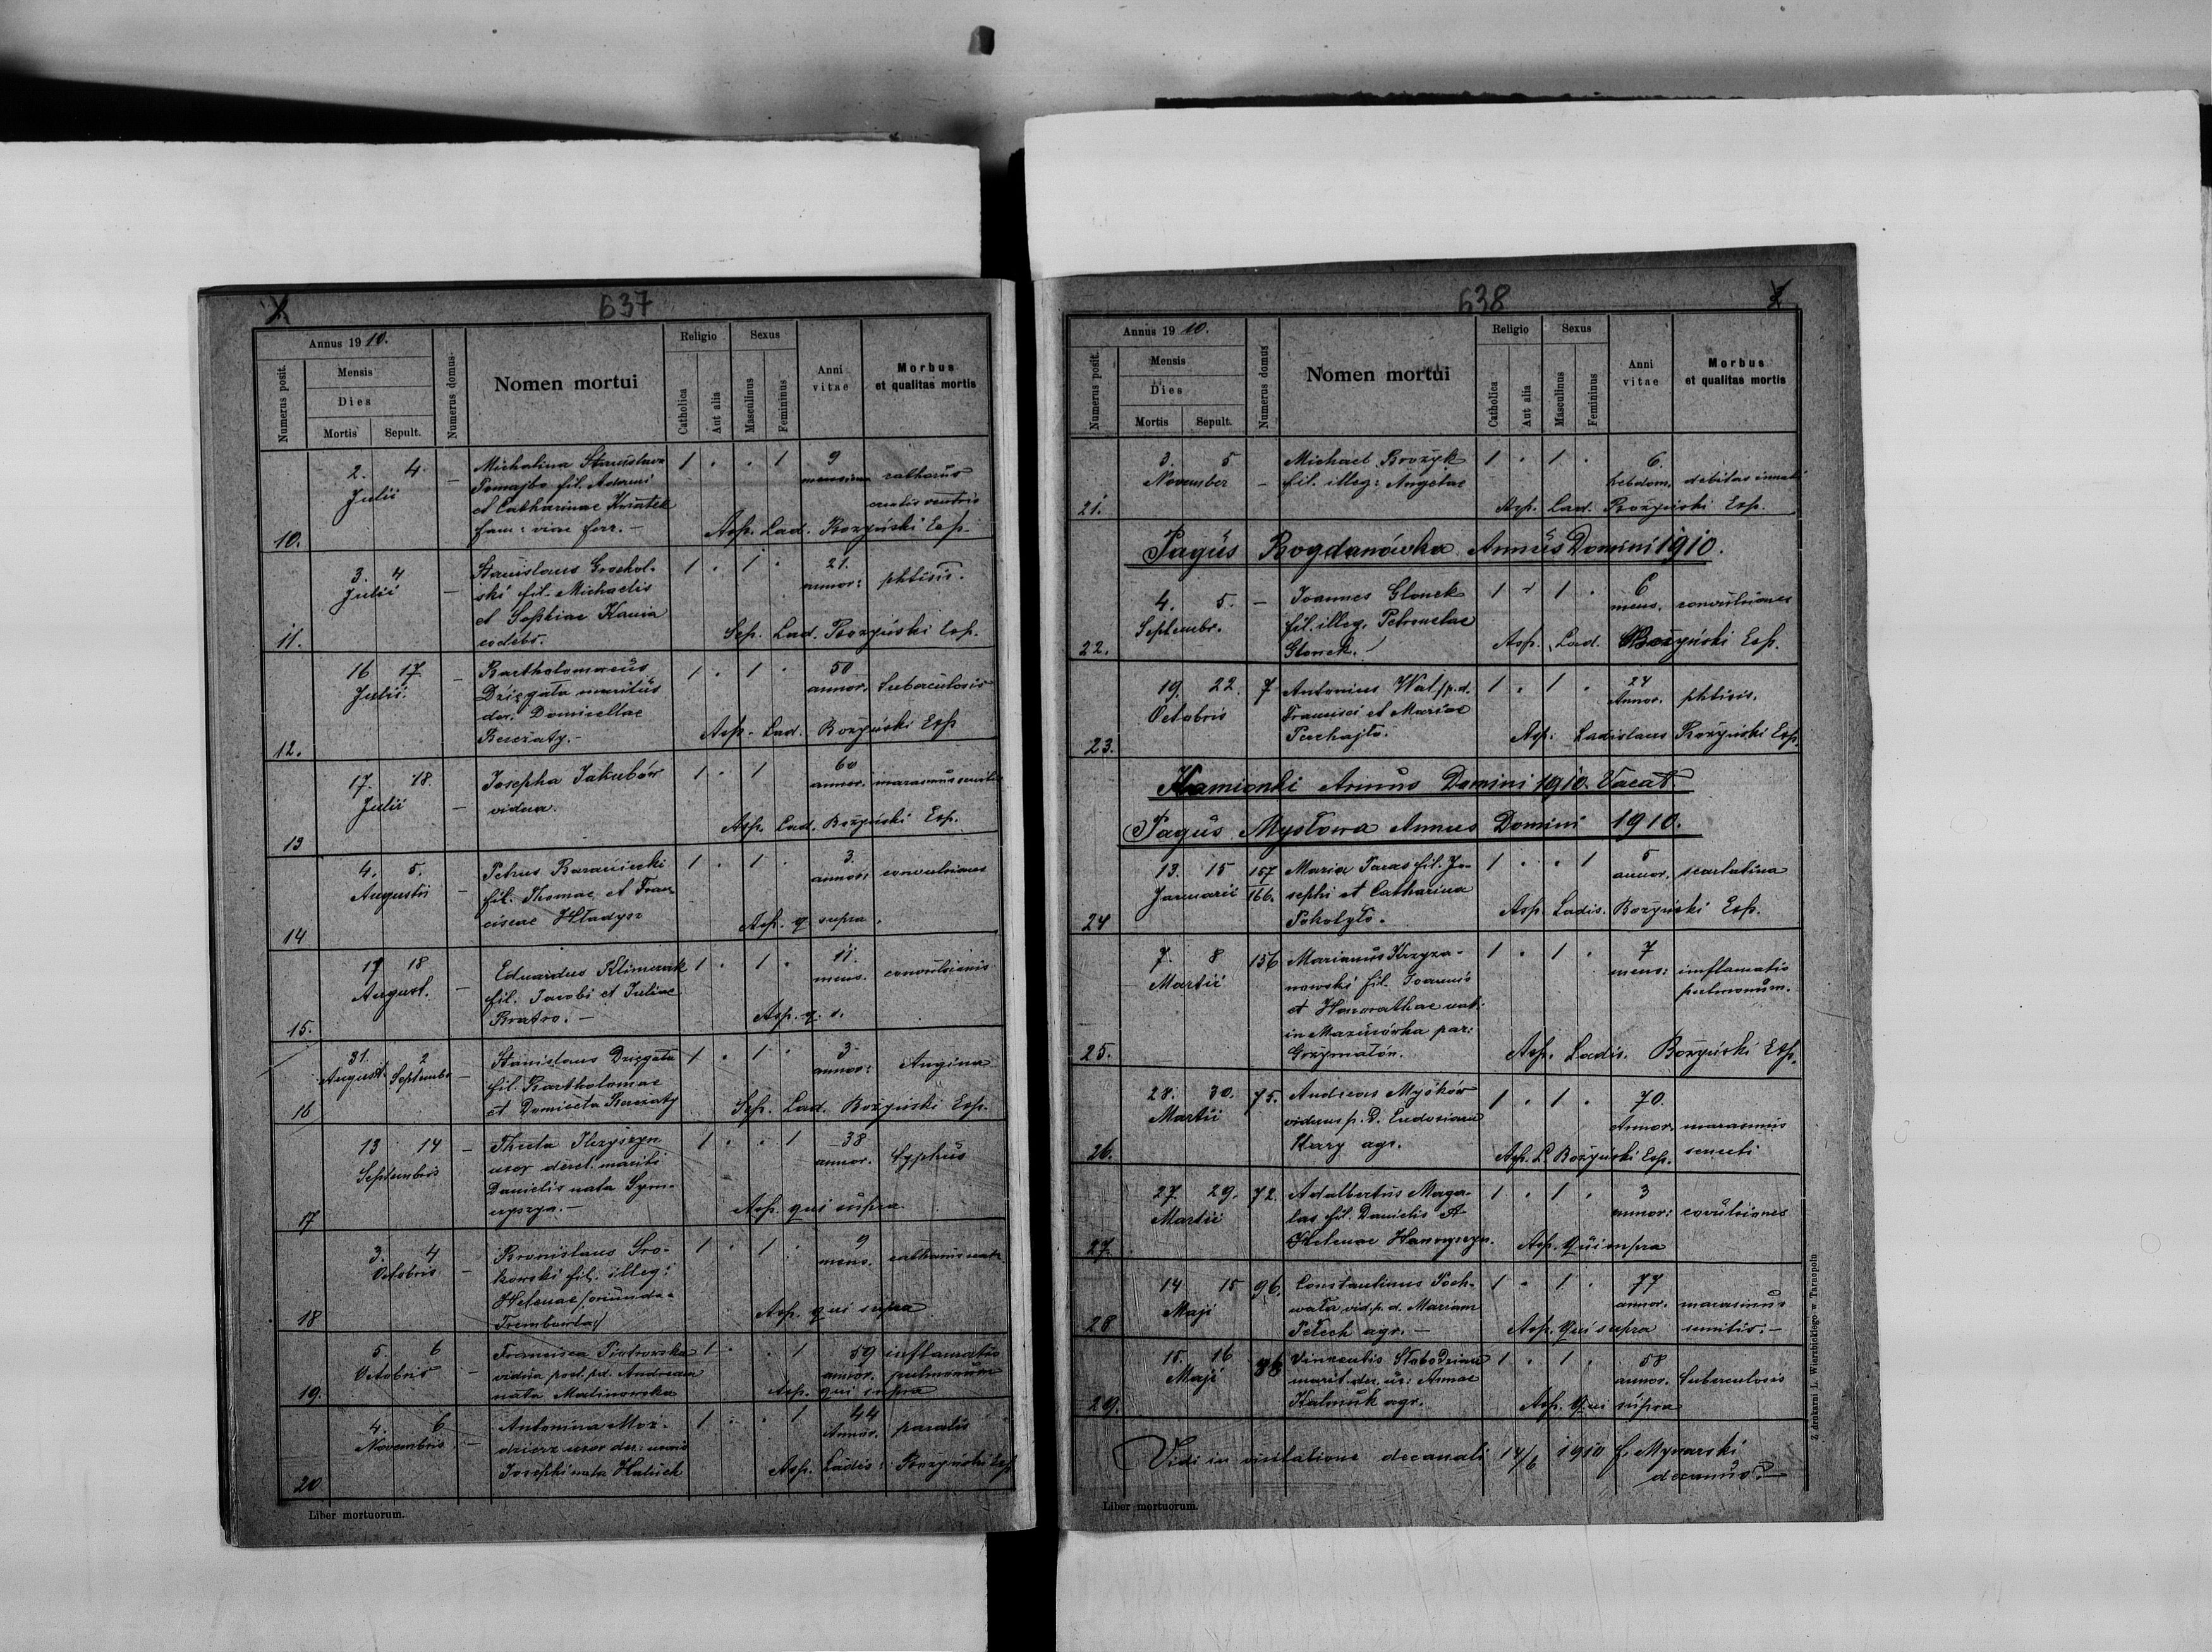 637
Annus 1910.
Numerus posit.
Mensis
Dies
Mortis
Sepult.
Numerus domus.
Nomen mortui
Religio
Catholica
Aut alia
Sexus
Masculinus
Femininus
Anni vitae
Morbus
et qualitas mortis
10.
2. 4.
Julii
Michalina Stanislava
fil. Adami
et Catharinae Kwiatek
fam: viae ferr. –
1 . . 1
9
catharus
ventris
Asp. Lad. Bożyński Exp.
11.
3. 4
Julii
Stanislaus Grochol-
ski fil. Michaelis
et Sophiae Kania
1 . 1 .
21.
annor:
phtisis.
Sep. Lad. Bożyński Exp.
12.
16 17
Julii.
Bartholomaeus
Dziegała maritus
der. Domicellae
1 . 1 .
50
annor.
tuberculosis
Asp. Lad. Bożyński Exp
13
17. 18.
Julii
Josepha Jakubów
vidua.
1 . 1
60
annor.
marasmus senilis
Asp. Lad. Bożyński Exp.
14
4. 5.
Augusti
Petrus Baraniecki
fil. Thomae et Fran
ciscae Władysz
1 . 1 .
3.
annor:
convulsiones
Asp. q supra.
15.
17 18
August.
Eduardus Klimczak
fil. Jacobi et Juliae
Bratro. –
1 . 1 .
11.
mens.
convulsionis
Asp. q. s.
16
31. 2
August. Septembr
Stanislaus Dziegała
fil. Bartholomae
et Domicela
1 . 1 .
3
annor:
Angina
Sep. Lad. Bożyński Exp.
17
13 14
Septembris
Thecla
uxor derel. mariti
Danielis nata Szym-
1 . . 1
38
annor.
typhus
Asp. qui supra.
18
3. 4
Octobris
Bronislaus Sro-
kowski fil. illeg:
Helenae /oriunda e
Trembowla/
1 . 1 .
9
mens.
Asp. qui supra
19.
5. 6
Octobris
Francisca Piotrowska
vidua post. p.d. Andream
nata Malinowska
1 . . 1
59
annor.
inflamatio
pulmonum
Asp. qui supra
20
4. 6
Novembris
Antonina Moź-
dzierz uxor der:
Josephi nata Haluch
1 . . 1
44
Annor.
paralis
Asp. Ladis: Bożyński Exp
Liber mortuorum.
638
Annus 1910.
Numerus posit.
Mensis
Dies
Mortis
Sepult.
Numerus domus
Nomen mortui
Religio
Catholica
Aut alia
Sexus
Masculinus
Femininus
Anni vitae
Morbus
et qualitas mortis
21.
3. 5
November
Michael Brożyk
fil. illeg: Angelae
1 . 1 .
6.
hebdom.
debilitas innata
Asp. Lad. Bożyński Exp.
Pagus Bogdanówka Annus Domini 1910.
22.
4. 5.
Septembr.
Joannes Glonek
fil. illeg. Petronelae
Glonek.
1 . 1 .
6
mens.
convulsiones
Asp. Lad. Bożyński Exp.
23.
19. 22. 7
Octobris
Antonius Wal. / p.d.
Francisci et Mariae
1 . 1 .
24
Annor.
phtisis.
Asp: Ladislaus Bożyński Exp.
Kamionki Annus Domini 1910. Vacat
Pagus Mysłowa Annus Domini 1910.
24
13. 15
Januarii
157
166.
Maria Taras fil. Jo-
sephi et Catharina
Pokolyło.
1 . . 1
5
annor.
scarlatina
Asp Ladis. Bożyński Exp.
25.
7. 8 156
Martii
Marianus Krzyża-
nowski fil. Joannis
et Honorathae nat:
in Mazurówka par:
Grzymałów.
1 . 1 .
7
mens:
imflamatio
pulmonum.
Asp. Ladis. Bożyński Exp.
26.
28. 30. 75.
Martii
Andreas Myśków
viduus p. D. Eudosiam
Kary agr.
1 . 1 .
70.
Annor.
marasmus
senecti
Asp. L. Bożyński Exp.
27.
27. 29. 72.
Martii
Adalbertus Maga-
las fil. Danielis et
Helenae
1 . 1 .
3
annor:
covulsiones
Asp. Qui supra
28
14 15 96.
Maji
Constantinus Poch-
wała vid. p. d. Mariam
Petech agr. –
1 . 1 .
77
annor.
marasmus
senilis. –
Asp. Qui supra
29.
15. 16
Maji
Vincentis Słobodzian
marit. der. ux: Annae
Kalmuk agr.
1 . 1 .
58
annor.
tuberculosis
Asp. Qui supra
Vidi in visitatione decanali 14/6 1910 f. Mynarski
decanus. –
Liber mortuorum.
Z drukarni L. Wierzbickiego w Tarnopolu